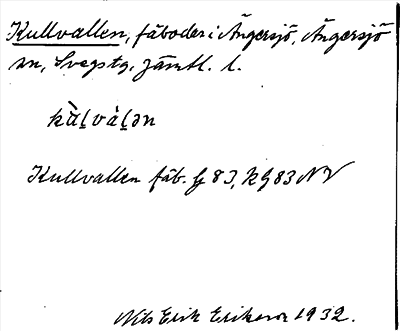 Kullvallen, fäboder i Ängersjö, Ängersjö
sn, Svegs tg, Jämtl. l.
kùḷvàḷən
Kullvallen fäb. G 83, K G 83 NV
Nils Erik Erikson 1932.